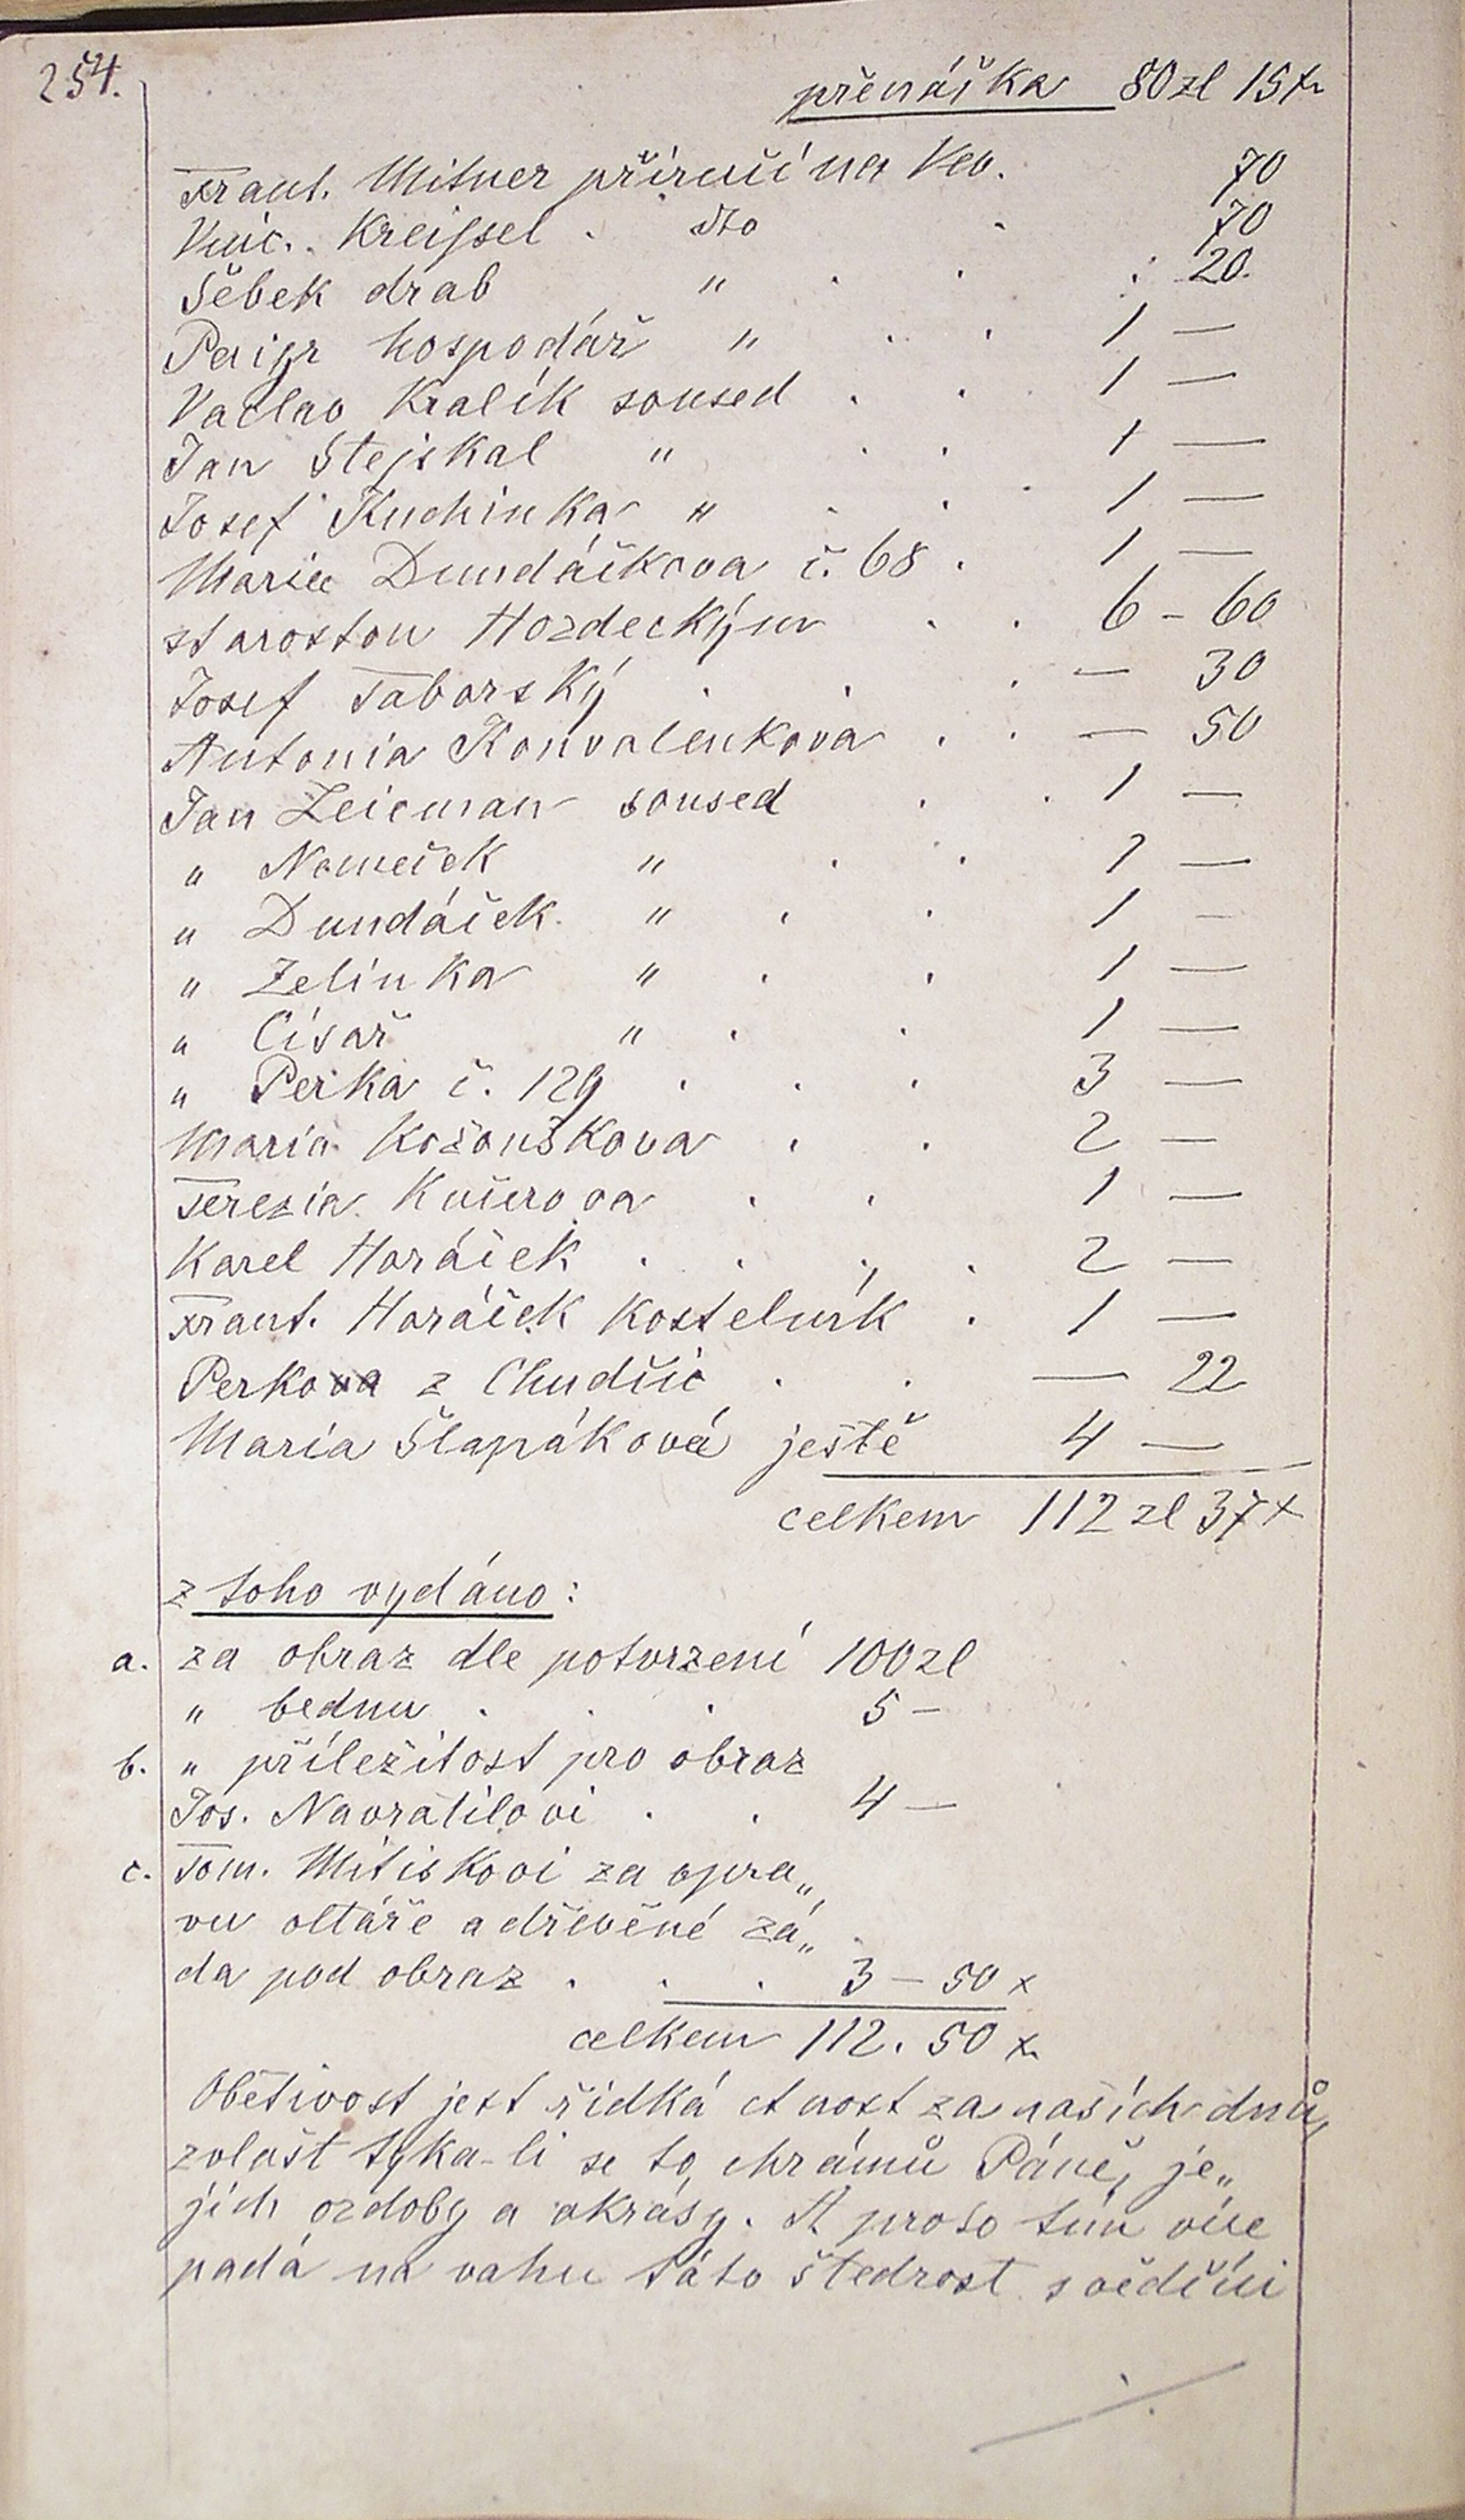 254.
přenáška 80 zl 15 x
Frant. Mitner příručí na Vev. 70
Vinc. Kreissel . dto . 70
Šebek drab " . . : 20.
Paigr hospodář " . . 1 —
Vaclav Kralík soused . . 1 —
Jan Stejskal " . . 1 —
Josef Kuchinka " . . . 1 —
Marie Dundáčkova č. 68 . 1 —
starostou Hozdeckým . . 6 - 60
Josef Taborský . . . — 30
Antonia Konvalenkova . . — 50
Jan Zeicman soused . . 1 —
" Nemeček " . . 1 —
" Dundáček " . . 1 —
" Zelinka " . . 1 —
" Císař " . . 1 —
" Perka č. 129 . . . 3 —
Maria Kožouškova . . 2 —
Terezia Kučerova . . 1 —
Karel Horáček . . . . 2 —
Frant. Horáček kostelník . 1 —
Perkova z Chudčic . . — 22
Maria Šlapáková ještě 4 —
celkem 112 zl 37 x
z toho vydáno:
a. za obraz dle potvrzení 100 zl
" bednu . . . 5 —
b. " příležitost pro obraz
Jos. Navrátilovi . . 4 —
c. Tom. Mitiskovi za opra„
vu oltáře a dřevěné zá„
da pod obraz . . . 3 — 50 x
celkem 112. 50 x
Obětivost jest řídká ctnost za našich dnů,
zvlášt týka-li se to chrámů Páně, je„
jich ozdoby a okrásy. A proto tím více
padá na vahu táto štedrost svědčíci
./.